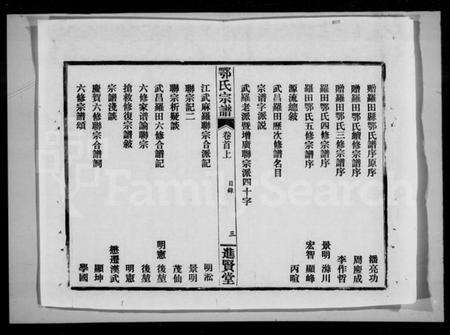 贈羅田縣鄂氏譜序原序 潘亮功
贈羅田鄂氏續修宗譜序 周慶成
贈羅田鄂氏三修宗譜序 李作哲
羅田鄂氏四修宗譜序 景明 瀚川
羅田鄂氏五修宗譜序 宏智 顯峰
源流總敍 丙暄
武昌羅田歷次修譜名目
宗譜字派說
武羅老派暨增廣聯宗派四十字
鄂氏宗譜 卷首上 目錄 三 進賢堂
江武麻羅聯宗合派記 明淞
聯宗記二 景明
聯宗析疑談 茂仙
武昌羅田六修合譜記 明憲 後堃
六修家譜論聯宗 後堃
搶救修復宗譜敍 明憲
宗譜淺談 懋遷漢武
慶賀六修聯宗合譜詞 顯坤
六修宗譜頌 學國
FamilySearch